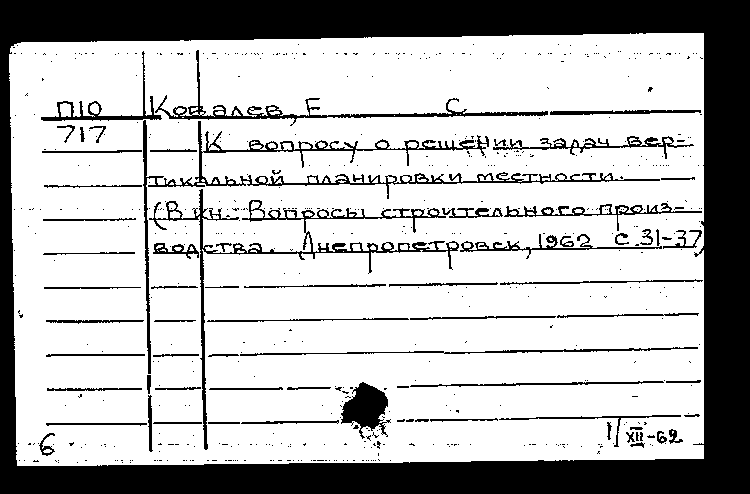 П10 Ковалев, Е С
717 К вопросу о решении задач вер-
тикальной планировки местности.
(В кн.: Вопросы строительного произ-
водства. Днепропетровск, 1962 с. 31-37)
6 1/XII-62